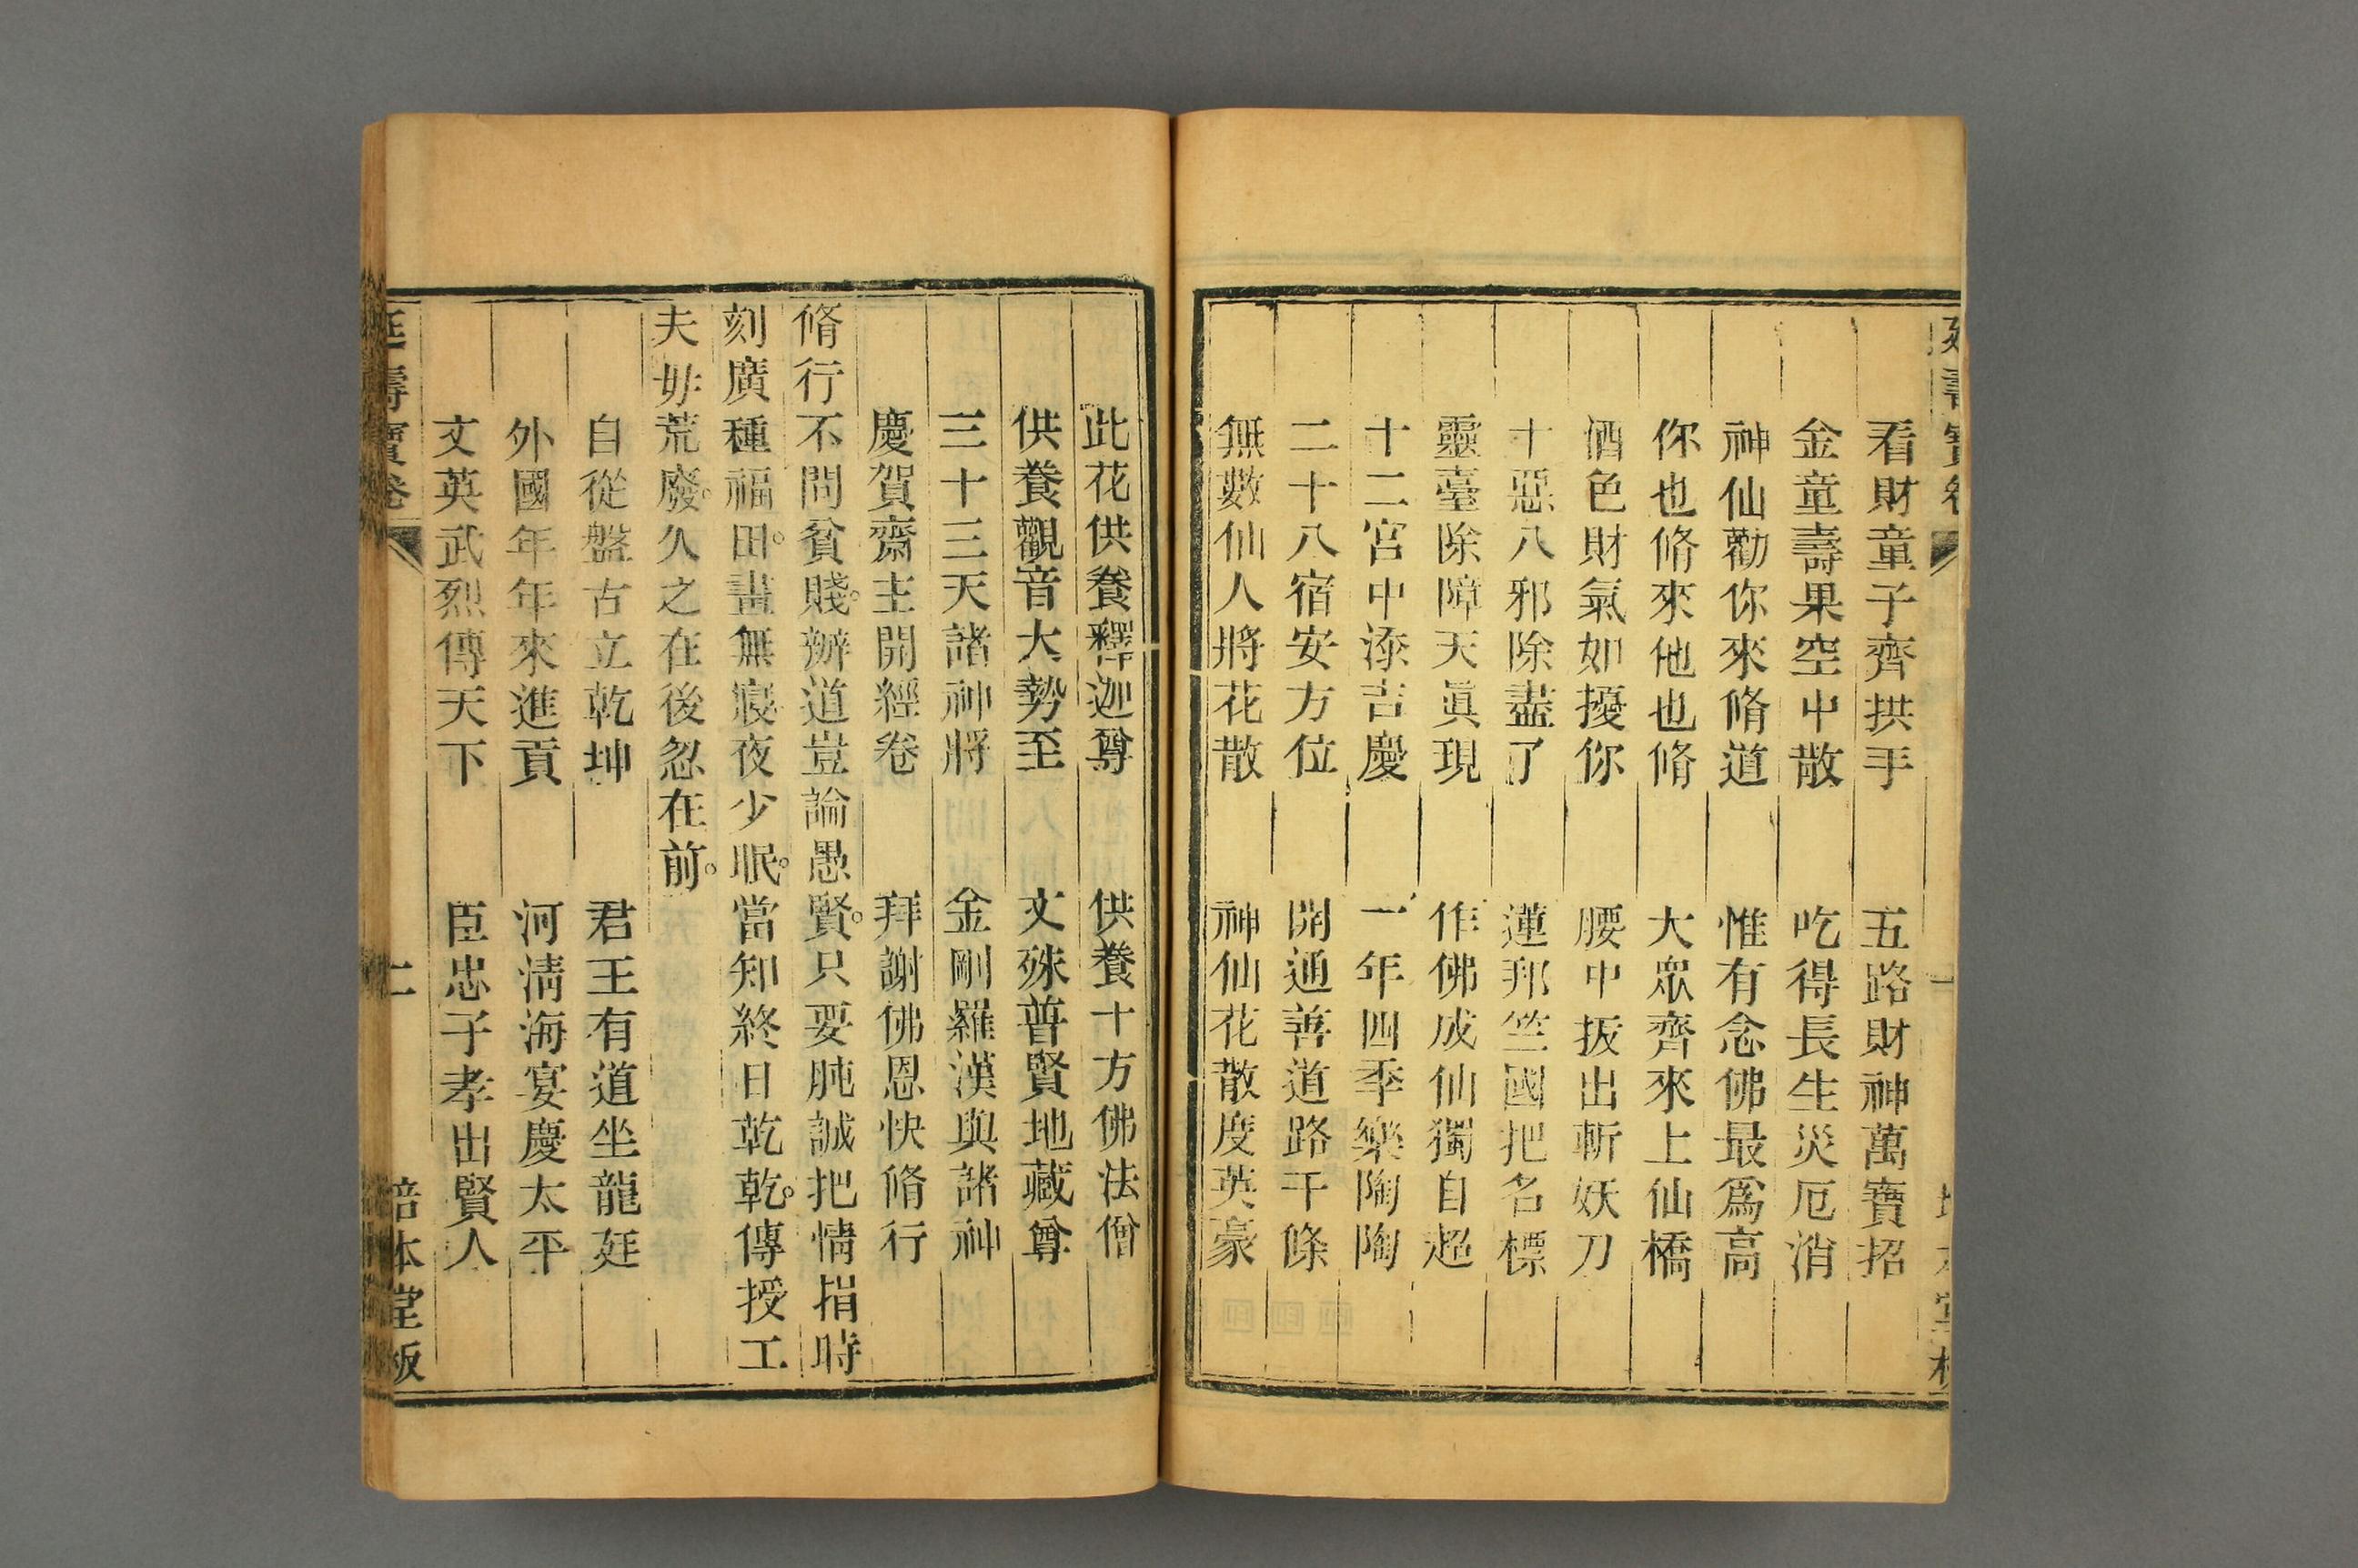 看財童子齊拱手　五路財神萬寶招
金童壽果空中散　吃得長生災厄消
神仙勸你來脩道　惟有念佛最爲高
你也脩來他也脩　大衆齊來上仙橋
酒色財氣如擾你　腰中拔出斬妖刀
十惡八邪除盡了　蓮邦竺國把名標
靈臺除障天眞現　作佛成仙獨自超
十二宮中添吉慶　一年四季樂陶陶
二十八宿安方位　開通善道路千條
無數仙人將花散　神仙花散度英豪
此花供養釋迦尊　供養十方佛法僧
供養觀音大勢至　文殊普賢地藏尊
三十三天諸神將　金剛羅漢與諸神
慶賀齋主開經卷　拜謝佛恩快脩行
脩行不問貧賤。辦道豈論愚賢。只要肫誠把情捐時
刻廣種福田。晝無寢夜少眠。當知終日乾乾。傳授工
夫毋荒廢。久之在後忽在前。
自從盤古立乾坤　君王有道坐龍廷
外國年年來進貢　河淸海宴慶太平
文英武烈傳天下　臣忠子孝出賢人
延壽寶卷　二　培本堂板